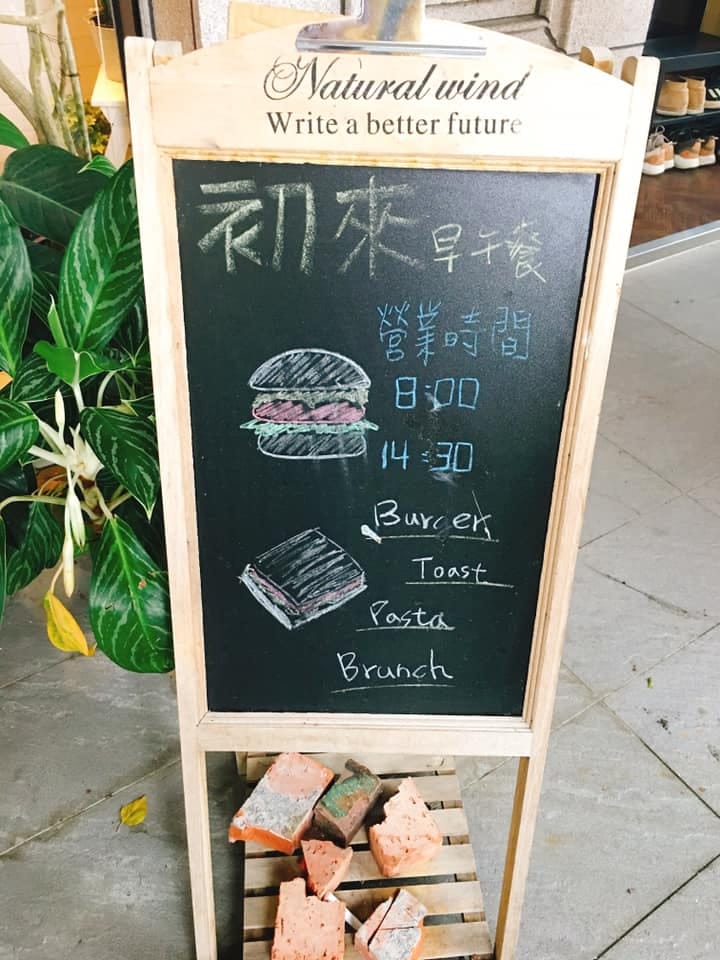 Natural wind
Write a better future
初來 早午餐
營業時間
8:00
14:30
Burger
Toast
Pasta
Brunch